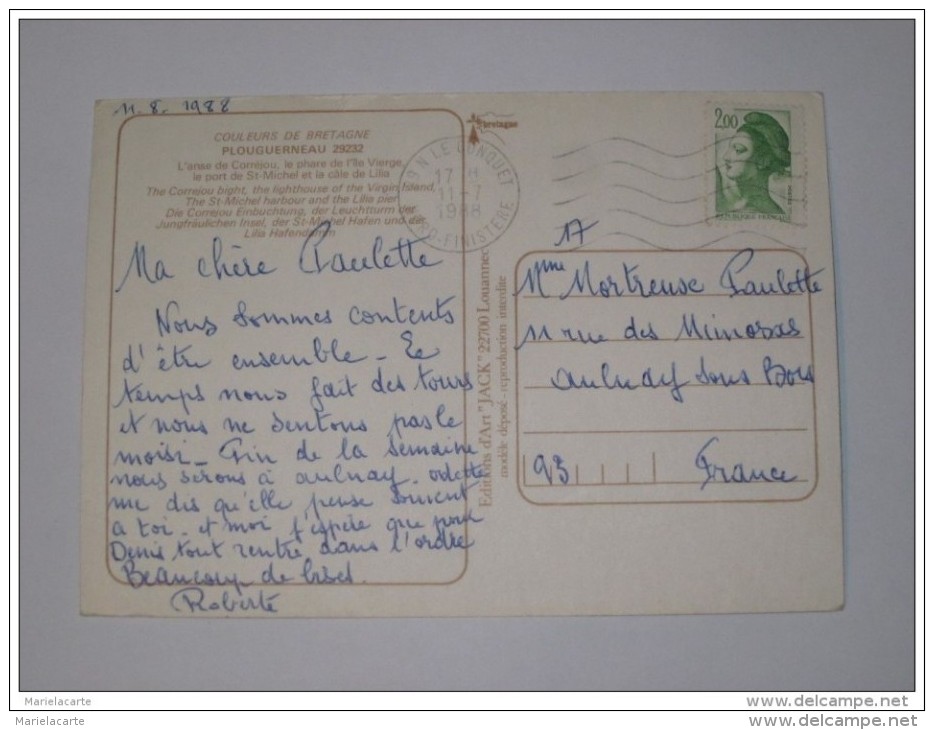 11. 8. 1988
COULEURS DE BRETAGNE
PLOUGUERNEAU 29232
L'anse de Corréjou, le phare de l'île Vierge,
le port de St-Michel et la câle de Lilia
The Correjou bight, the lighthouse of the Virgin Island,
The St-Michel harbour and the Lilia pier
Die Correjou Einbuchtung, der Leuchtturm der
Jungfräulichen Insel, der St-Michel Hafen und der
Lilia Hafendamm
Ma chère Paulette
Nous sommes contents
d'être ensemble - Le
temps nous fait des tours
et nous ne sentons pas le
moisi - Fin de la semaine
nous serons à aulnay. odette
me dis qu'elle pense souvent
a toi. et moi j'espère que pour
Denis tout rentre dans l'ordre
Beaucoup de bises.
Roberte
Editions d'Art "JACK" 22700 Louannec
modèle déposé - reproduction interdite
bretagne
LE CONQUET
17 H
11-7
1988
NORD-FINISTERE
2,00
REPUBLIQUE FRANÇAISE
17
Mme Mortreuse Paulette
11 rue des Mimosas
aulnay sous Bois
93 France
Marielacarte
Marielacarte
http://www.delcampe.net
http://www.delcampe.net